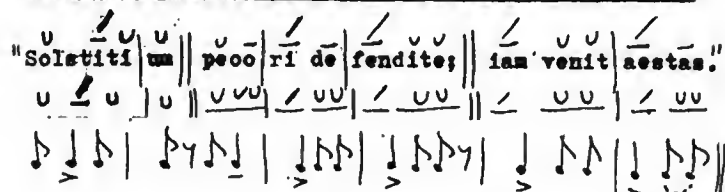 "Solstiti|um||pecō|rī dē|fendite;||iam venit|aestas."